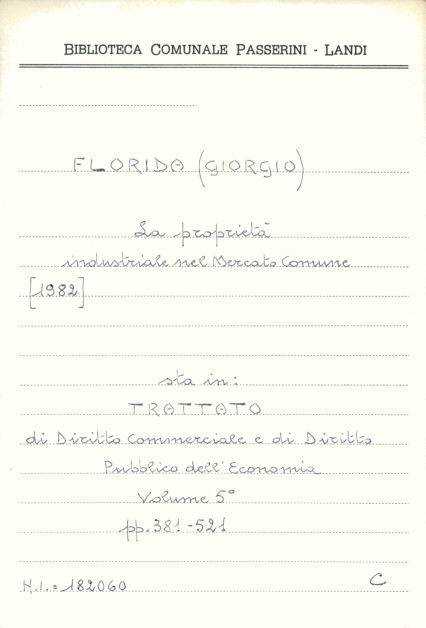 BIBLIOTECA COMUNALE PASSERINI - LANDI
FLORIDA (GIORGIO)
La proprietà
industriale nel Mercato Comune
[1982]
sta in:
TRATTATO
di Diritto Commerciale e di Diritto
Pubblico dell'Economia
Volume 5°
pp. 381-521
N.I. = 182060 C